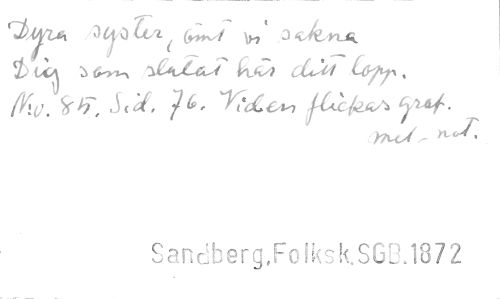 Dyra syster, ömt vi sakna
Dig som slutat här ditt lopp.
N:o. 85. Sid. 76. Vid en flickas graf.
mel. not.
Sandberg,Folksk.SGB.1872